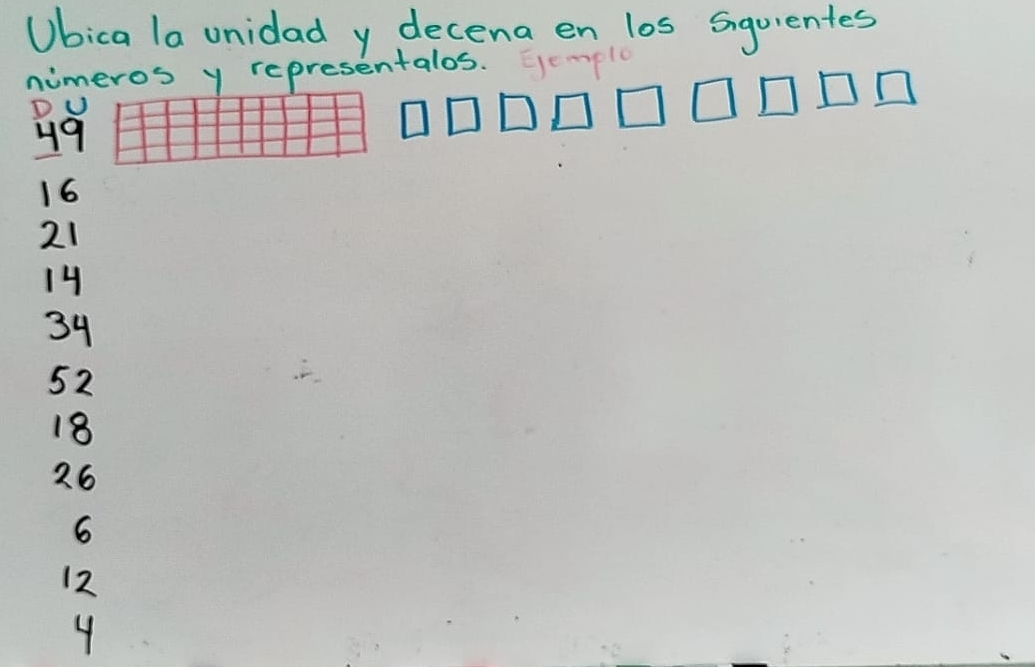 Ubica la unidad y decena en los siguientes
números y represéntalos. Ejemplo
D U
49
16
21
14
34
52
18
26
6
12
4